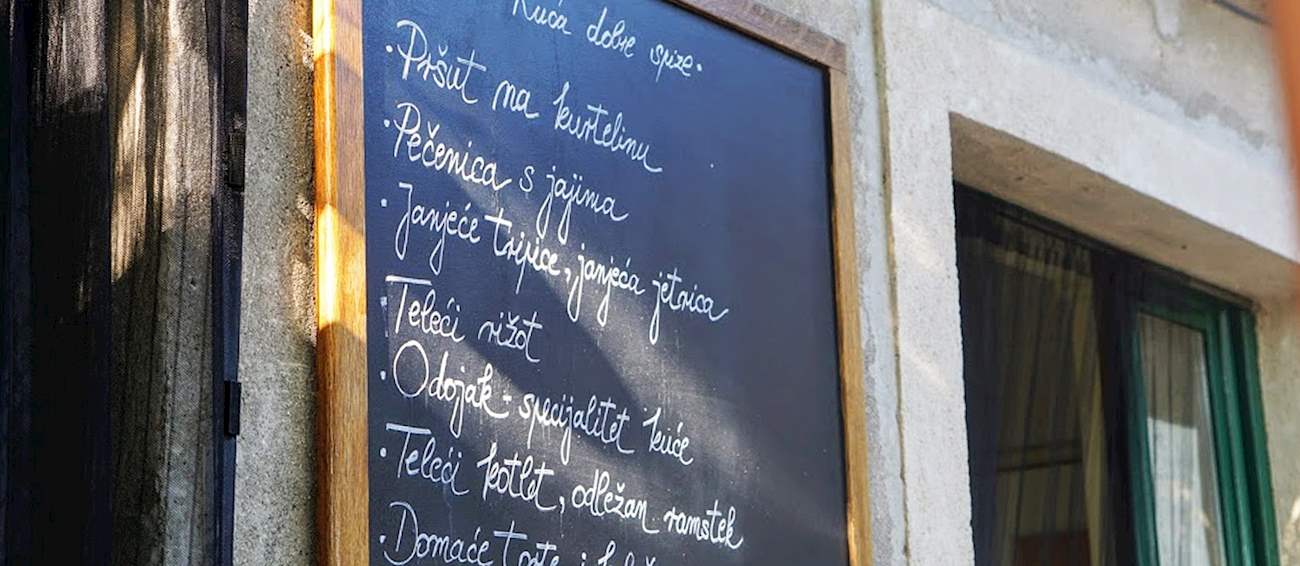 Kuća dobre spize.
· Pršut na kurtelinu
· Pečenica s jajima
· Janjeće tripice, janjeća jetrica
· Teleći rižot
· Odojak - specijalitet kuće
· Teleći kotlet, odležan ramstek
· Domaće torte i